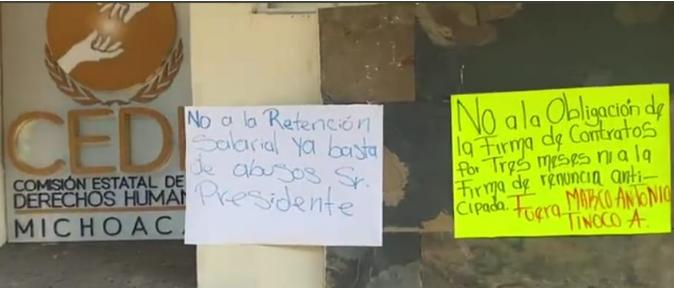 CEDH
COMISIÓN ESTATAL DE
DERECHOS HUMAN
MICHOAC
No a la Retención
Salarial Ya basta
de abusos Sr.
Presidente
No a la Obligación de
la Firma de Contratos
Por Tres meses ni a la
Firma de renuncia anti-
cipada. Fuera MARCO ANTONIO
TINOCO A.